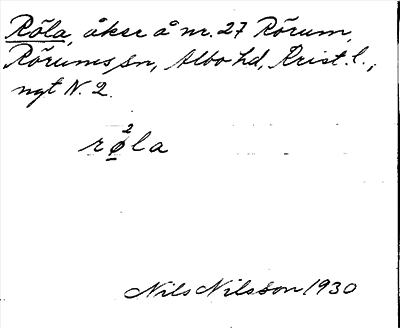 Röla, åker å nr. 27 Rörum,
Rörums sn, Albo hd, Krist. l.,
ngt N. 2.
rø²la
Nils Nilsson 1930